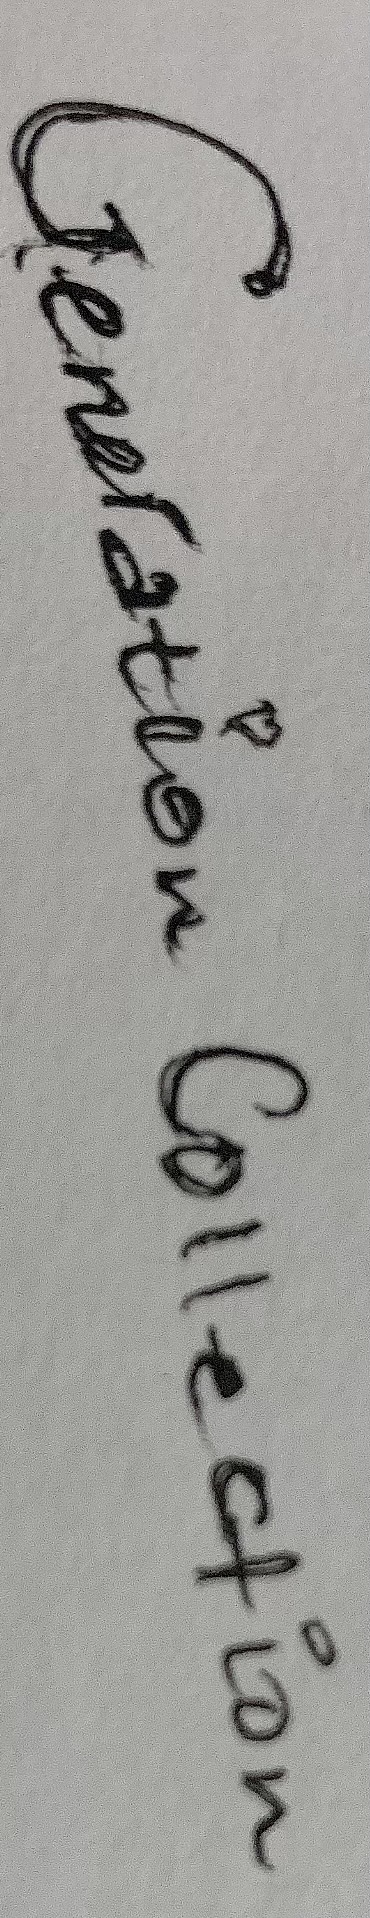 Generation Collection